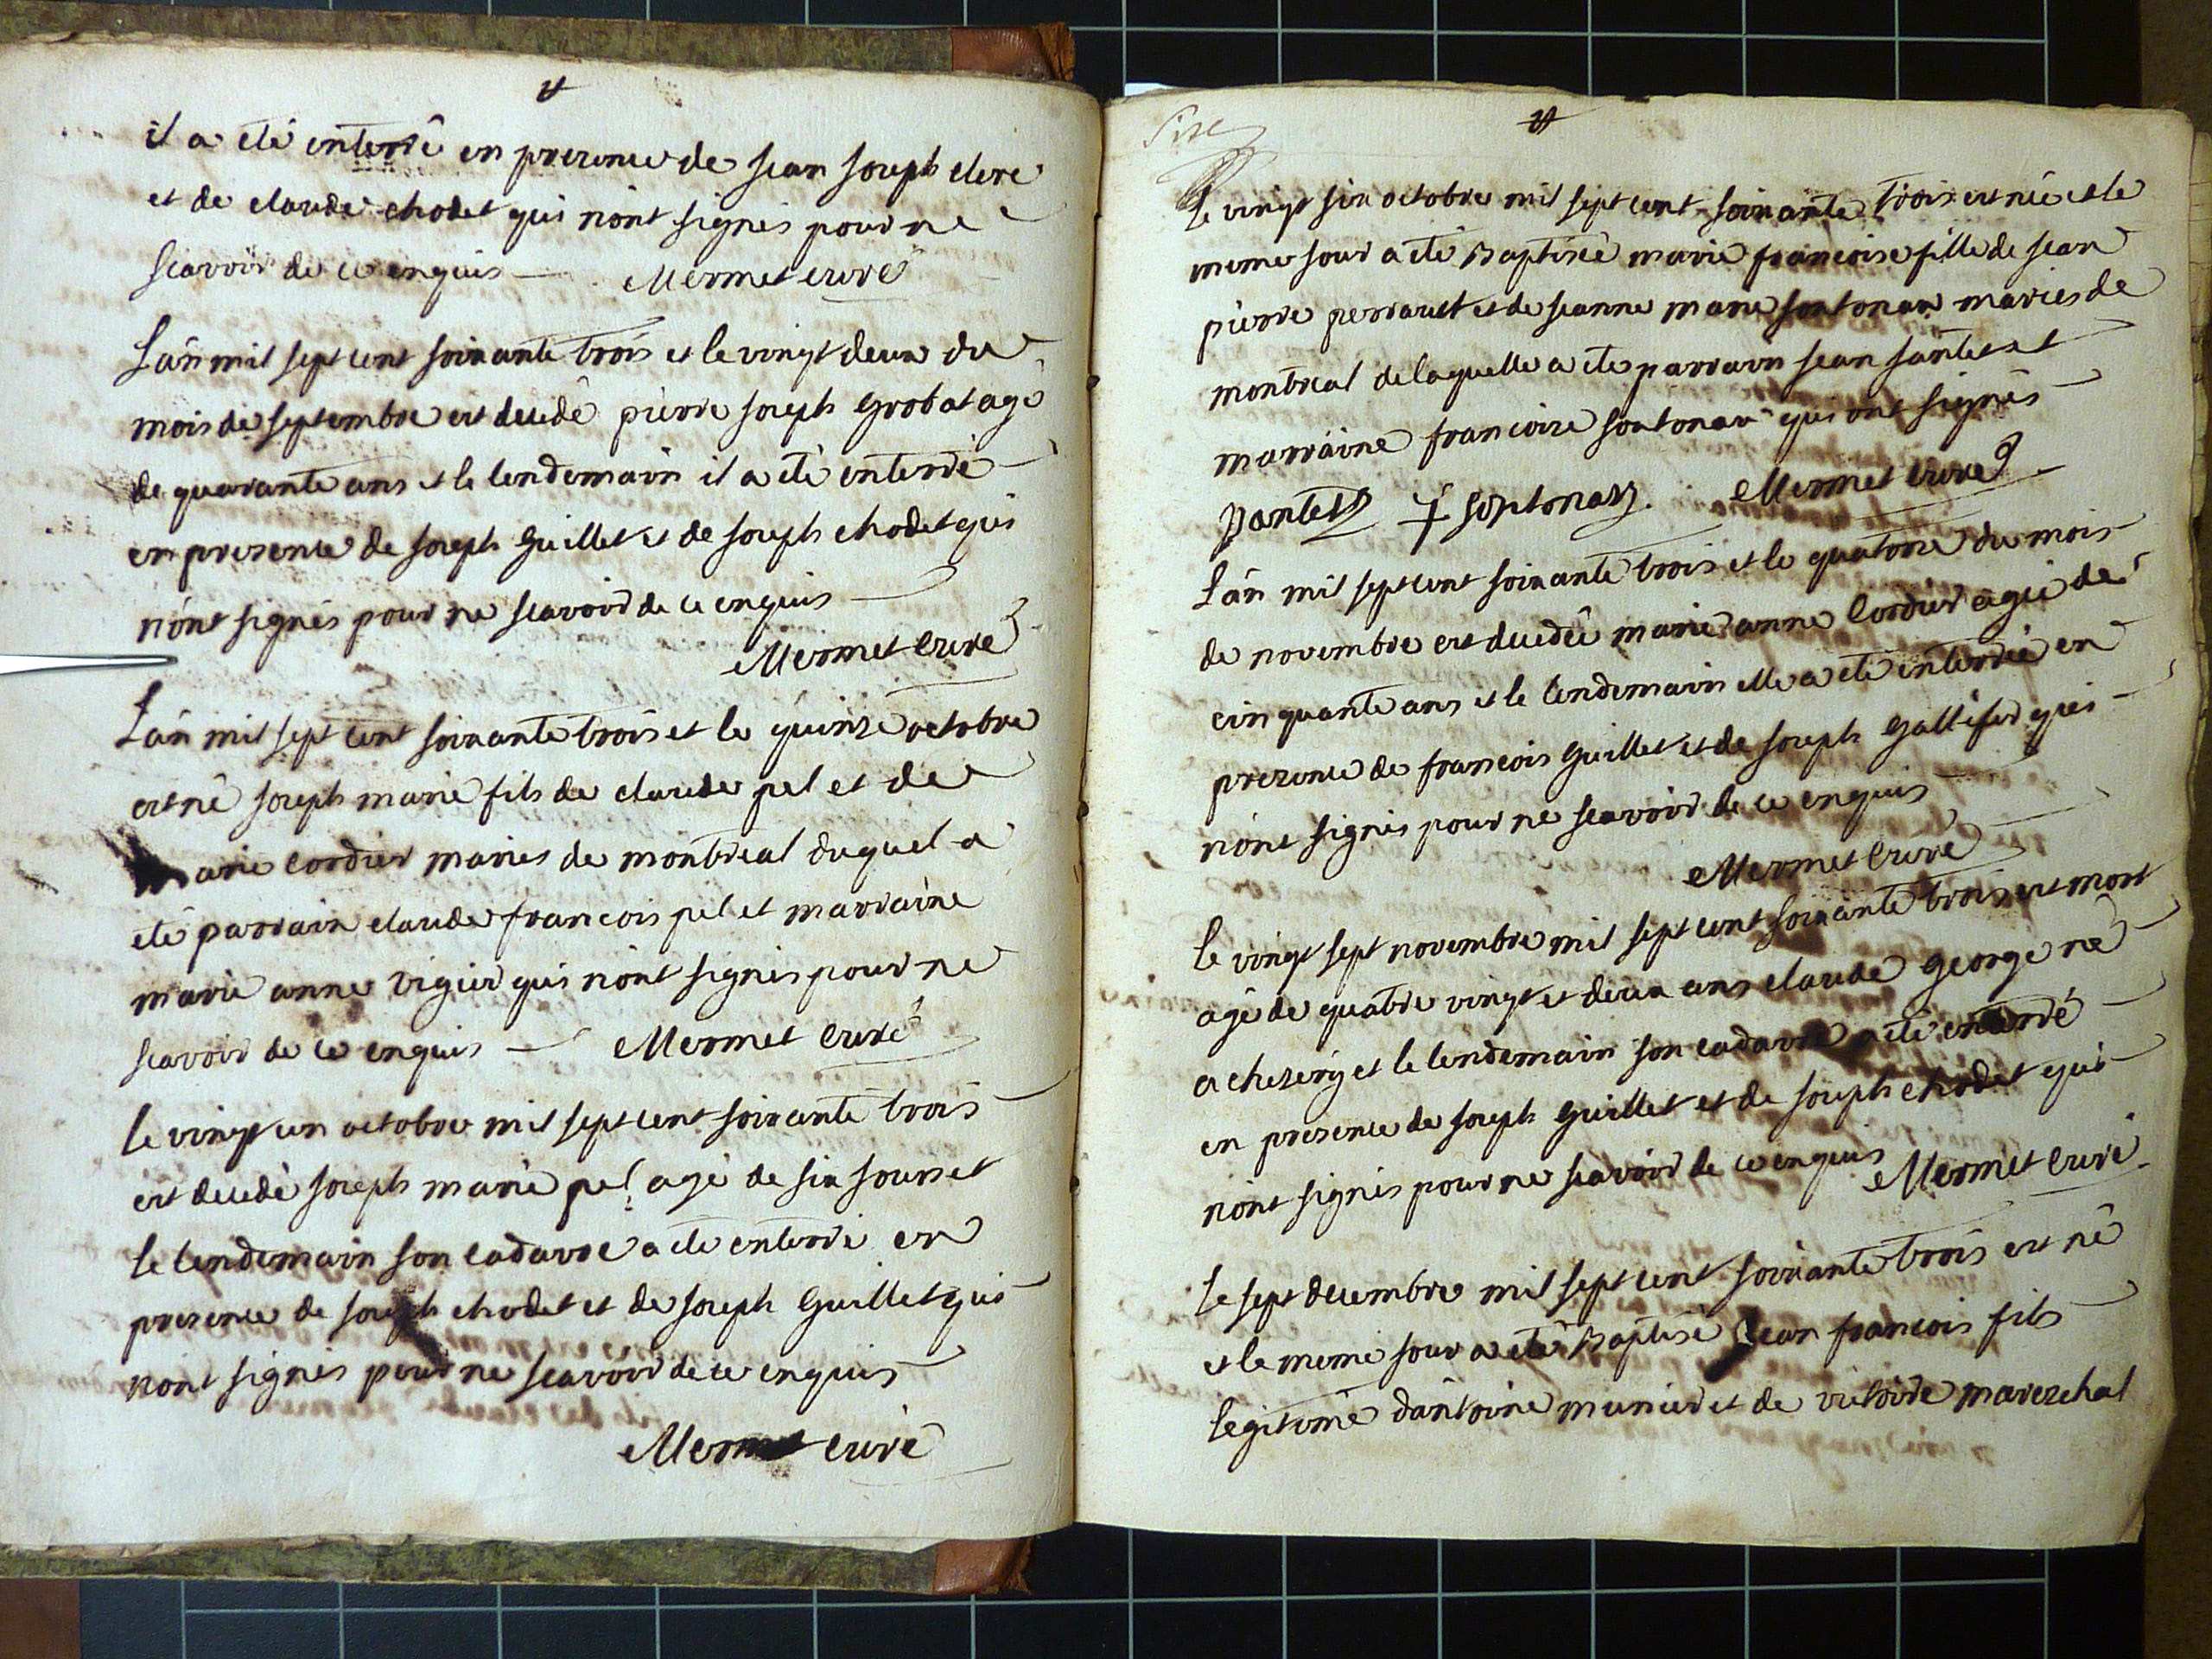 il a eté enterré en presence de jean joseph clerc
et de claude chodet qui n'ont signés pour ne
scavoir de ce enquis Mermet curé
L'an mil sept cent soixante trois et le vingt deux du
mois de septembre est decedé pierre joseph Grobat agé
de quarante ans et le lendemain il a eté enterré
en presence de joseph Guillet et de joseph chodet qui
n'ont signés pour ne scavoir de ce enquis
Mermet curé
L'an mil sept cent soixante trois et le quinze octobre
est né joseph marie fils de claude pel et de
marie Cordier maries de montreal duquel a
eté parrain claude francois pel et marraine
marie anne vigier qui n'ont signés pour ne
scavoir de ce enquis Mermet curé
Le vingt un octobre mil sept cent soixante trois
est decedé joseph marie pel agé de six jours et
le lendemain son cadavre a eté enterré en
presence de joseph chodet et de joseph Guillet qui
n'ont signés pour ne scavoir de ce enquis
Mermet curé
Le vingt six octobre mil sept cent soixante trois est née et le
meme jour a eté Baptisée marie francoise fille de jean
pierre perrault et de jeanne marie sontonax maries de
montreal de laquelle a eté parrain jean jantet et
marraine francoise sontonax qui ont signés
Jantet f sontonax Mermet curé
L'an mil sept cent soixante trois et le quatorze du mois
de novembre est decedée marie anne Cordier agée de
cinquante ans et le lendemain elle a eté enterrée en
presence de francois Guillet et de joseph Gallifet qui
n'ont signés pour ne scavoir de ce enquis
Mermet Curé
le vingt sept novembre mil sept cent soixante trois est mort
agé de quatre vingt et deux ans claude George né
a chezery et le lendemain son cadavre a eté enterré
en presence de joseph Guillet et de joseph chodet qui
n'ont signés pour ne scavoir de ce enquis Mermet curé
Le sept decembre mil sept cent soixante trois est né
et le meme jour a eté Baptisé jean francois fils
legitime d'antoine munier et de victoire marezchal